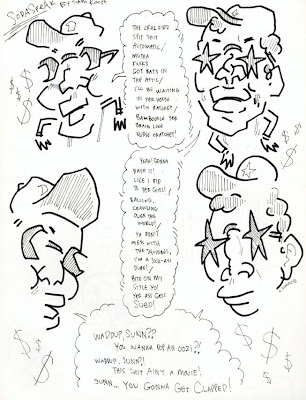 SODASPEAK
BY SAM
THE CRACK KIDZ
SPIT SHIT
AUTOMATIC!
MUTHA
FUKAS
GOT BATS IN
THE ATTIC!
I'LL BE WAITING
IN THE BUSH
WITH RATCHET!
BAMBOOZLE YOU
BRAIN LIKE
NURSE CRATCHET!
YEAH! GONNA
BASH IT!
LIKE I DID
TO YER GIRL!
BALLING,
CRAWLING
DUCK THE
WORLD!
YA DON'T
MESS WITH
THE
I'M A
DUDE!
BITE ON MY
STYLE YO!
YER ASS GETS
SUED!
WADDUP, SUNN??
YOU WANNA POP AN OOZI?!
WADDUP, SUNN?!
THIS SHIT AIN'T A MOVIE!
SUNN... YOU GONNA GET CLAPPED!
$
$
$
$
$
$
$
$
$